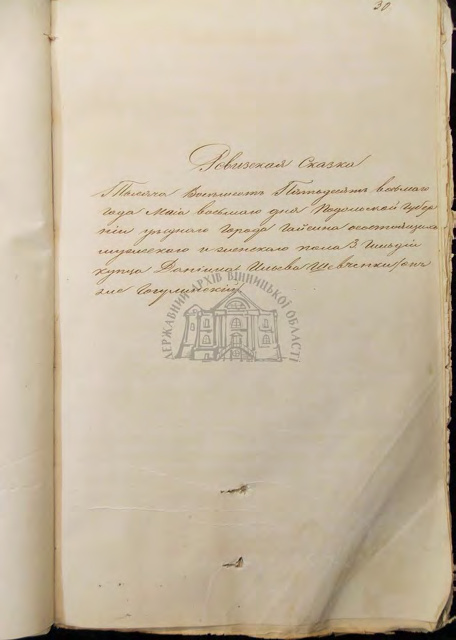 30
Ревизская Сказка
Тысяча Восемсотъ Пятьдесятъ восьмаго
года Маія восьмаго дня Подольской Губер
ніи уезднаго Города Гайсина о состоящихъ
мужескаго и женскаго пола 3 Гильдіи
купца Даніила Ильева Шевченки онъ
же
ДЕРЖАВНИЙ АРХІВ ВІННИЦЬКОЇ ОБЛАСТІ